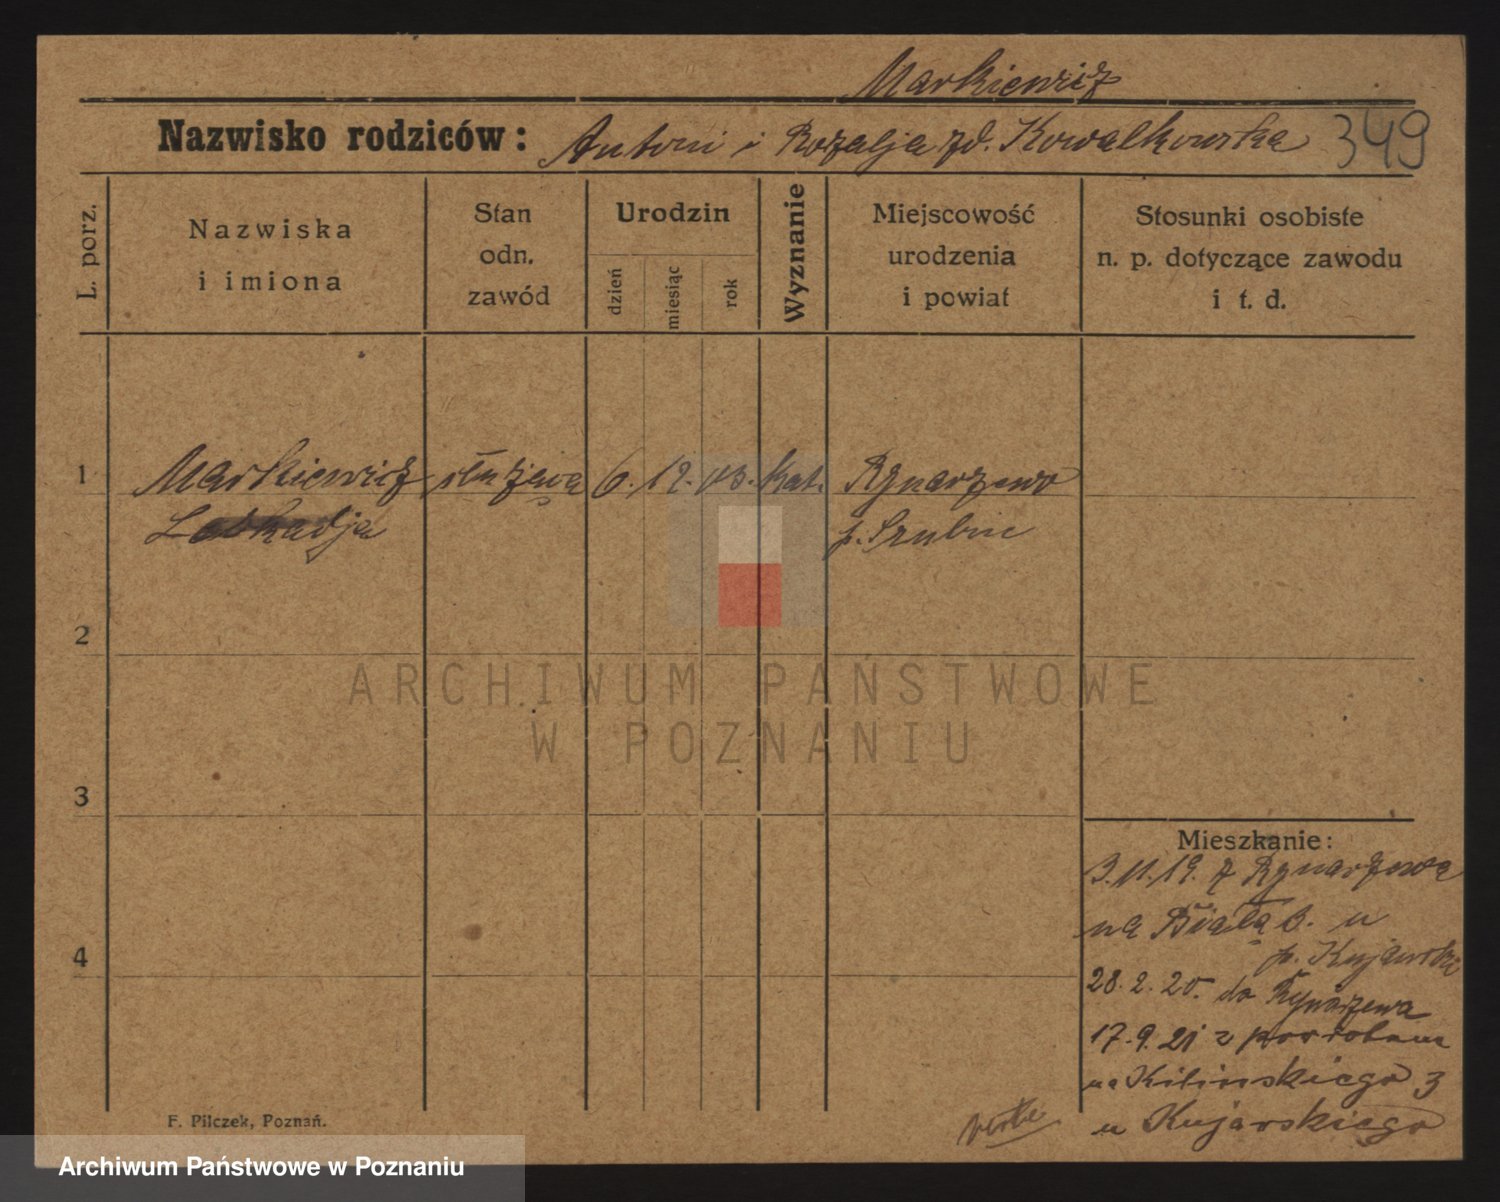 Markiewicz
Nazwisko rodziców: Antoni i Rozalja zd. Kowalkowska 349
L. porz.
Nazwiska
i imiona
Stan
odn.
zawód
Urodzin
dzień
miesiąc
rok
Wyznanie
Miejscowość
urodzenia
i powiat
Stosunki osobiste
n. p. dotyczące zawodu
i t. d.
1 Markiewicz służąca 6. 12. 03. kat. Rynarzewo
Leokadja p. Szubin
2
ARCHIWUM PAŃSTWOWE
W POZNANIU
3
Mieszkanie:
3.11.19. z Rynarzewa
na Białą 3. u
p. Kujawski
4
28.2.20. do Rynarzewa
17.9.21 z powrotem
na Kilinskiego 3
u Kujawskiego
verte
F. Pilczek, Poznań.
Archiwum Państwowe w Poznaniu